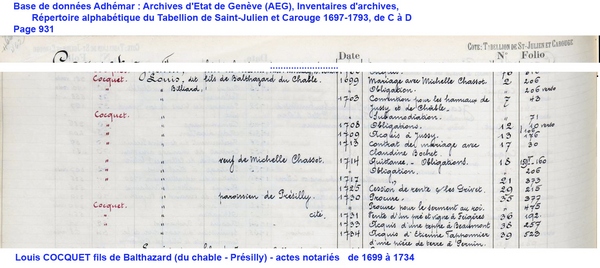 Base de données Adhémar : Archives d'Etat de Genève (AEG), Inventaires d'archives,
Répertoire alphabétique du Tabellion de Saint-Julien et Carouge 1697-1793, de C à D
Page 931
COTE: TABELLION DE ST-JULIEN ET CAROUGE
Date N° Folio
Cocquet. Louis, des fils de Balthazard du Chable. 1699 Mariage avec Michelle Chassot. 2 206
" Billiard. " " Obligation. " 206 verso
" " 1703 Convention pour les hameaux de 7 43
Jussy et de Chable.
Cocquet. " " Subamodiation. " 71
" " 1708 Obligations. 12 verso
" " 1709 Acquis à Jussy. 13 176
" " 1713 Contrat de mariage avec 17 30
Claudine Bochet.
" veuf de Michelle Chassot. 1714 Quittances. - Obligations. 18 160
" " Obligation. " 206
" 1717 " 21 373
" " 1725 Cession de rente 29 215
" paroissien de Présilly. 1730 Procure. 35 377
Cocquet. " " Procure pour le serment au roi. " 475
" cité. 1731 Vente d'un pré et vigne à Feigères 36 192
" " 1733 Acquis d'une rente à Beaumont 38 257
" " 1734 Acquis d'Etienne 39 523
d'une pièce de terre à
Louis COCQUET fils de Balthazard (du chable - Présilly) - actes notariés de 1699 à 1734